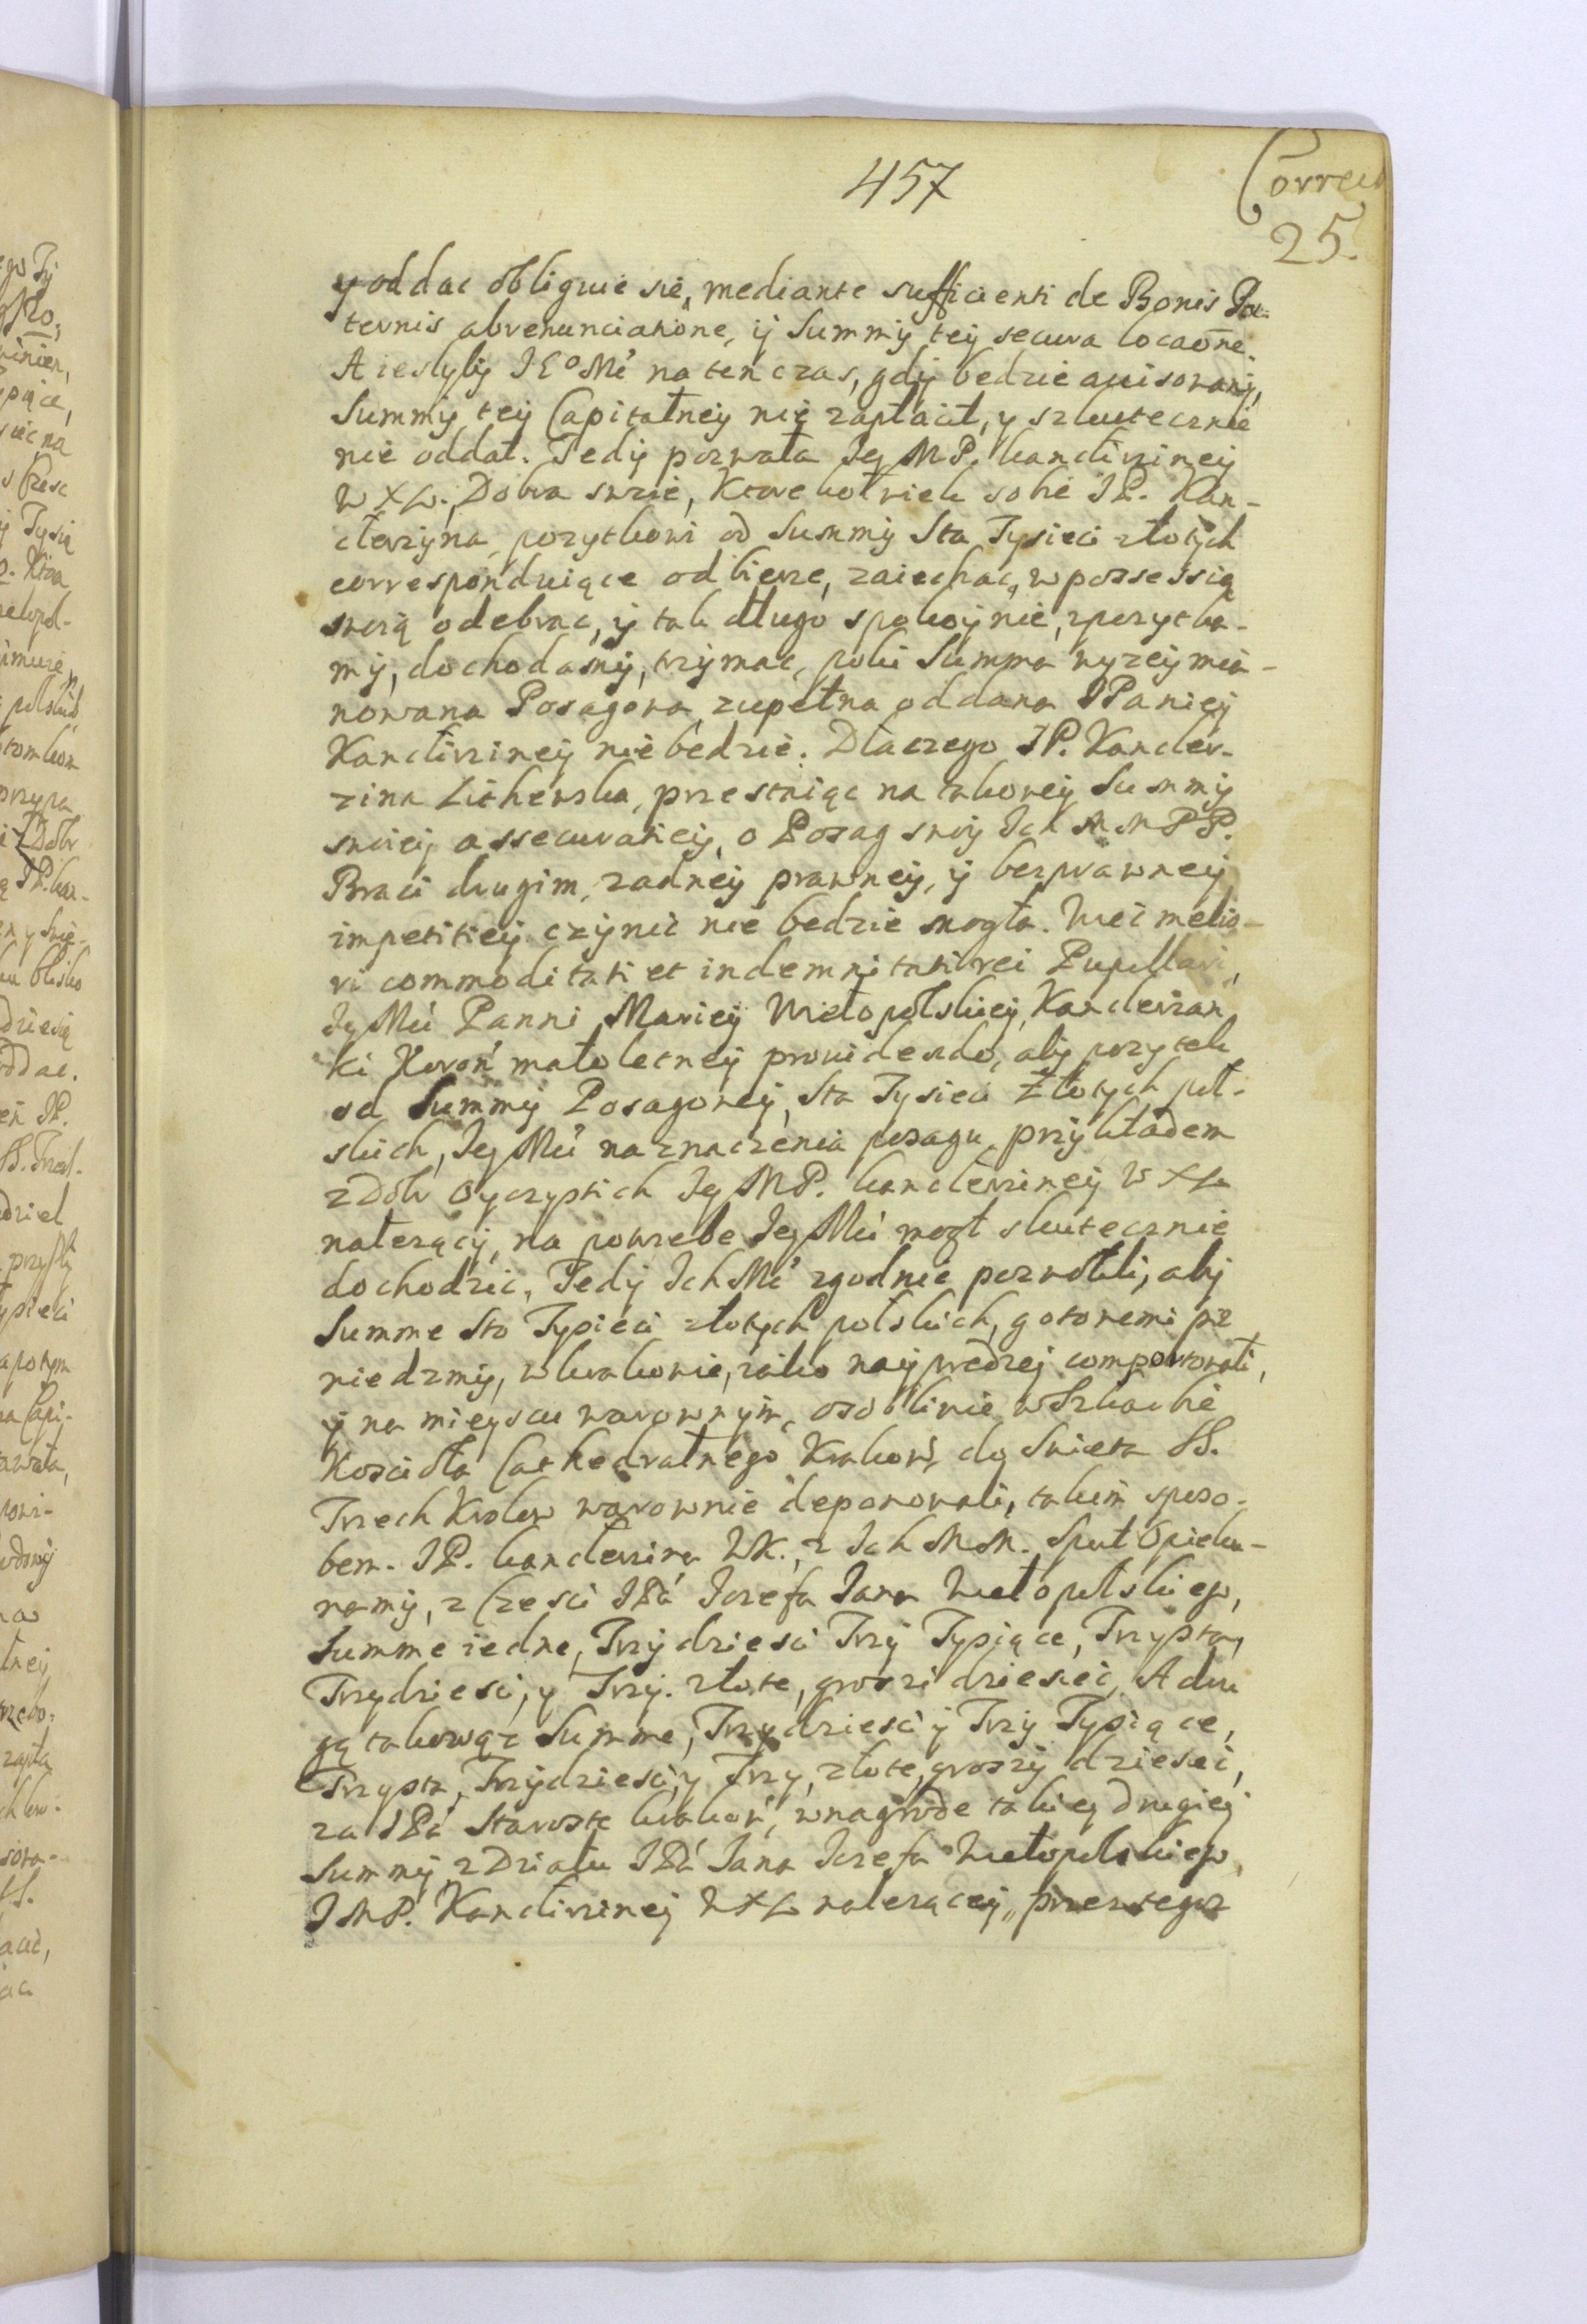 457
Correct
25.
y oddac obliguie się, mediante sufficienti de Bonis Pa-
ternis abrenunciatione, ij Summij teij secura locaōne.
A iesłybij JEº Mć na ten czas, gdij bedzie auisowanij,
Summij teij Capitałneij nie zapłacił, y szkutecznie
nie oddał. Tedij pozwała Jeg MP. kanclirzineij
W X L. Dobra swzie, Ktorekolwiek sobie JP. Kan-
clerzyna, pozytkowi od Summij Sta Tysieci złotijch
correspondujące odbierze, zaiechac, w possessią
swoią odebrac, ij tak długo spokoijnie, z pozytka-
mij, dochodamij, trzijmac, poki Summa wyzeij mia-
nowana Posagowa zupełna oddana JPanieij
Kanclirzineij nie bedzie. Dlaczego JP. Kancler-
zina Lithewska, przestaiąc na takoweij Summij
swoieij assecuratieij, o Posag swoij Ich M M P P.
Braci drugim, zadneij prawneij, ij bezprawneij
impetitieij czijnic nie bedzie mogła. Więc melio-
ri commoditati et indemnitati rei Pupillari,
Jeg Mći Panni Marieij Wielopolskieij, Kanclerzan
ki Koroń małoletneij prouidendo, abij pozytek
od Summij Posagoweij, Sta Tysieci Złotych pol-
skich, Jeg Mći naznaczenia posagu przijkładem
z Dobr Oyczystich Jeg MP. kanclerzineij W X L
nalezącij, na potrzebe Jeg Mći mogł skutecznie
dochodzic, Tedij Ich Mć zgodnie pozwolili, abij
Summe Sto Tysieci złotych polskich, gotowemi pie
niedzmij, w krakowie, iako naijpredzeij comportowali,
ij na mieyscu warownijm, osobliwie w Szkarbie
Kosciola Cathedralnego Krakow: do Swieta SS.
Trzech Krolow warownie deponowali, takim sposo-
bem. JP. kanclerzina WK., z Ich M M. Spuł Opieku-
namij, z Czesci JPā Jozefa Jana Wielopolskiego,
Summe iedne, Trzijdziesci Trzij Tysiące, Trzysta,
Trzydziesci, y Trzij. złote, groszi dziesiec, A dru
gą takowąz Summe, Trzydziesci ij Trzij Tysiące,
Trzysta, Trzijdziesci, y Trzy, złote, groszij dziesiec,
za JPā Staroste krakow, w nagrode takieij drugieij
Summij, z Działu JPā Jana Jozefa Wielopolskiego,
J M P. Kanclirzineij W X L nalezącieij, przez tegoz